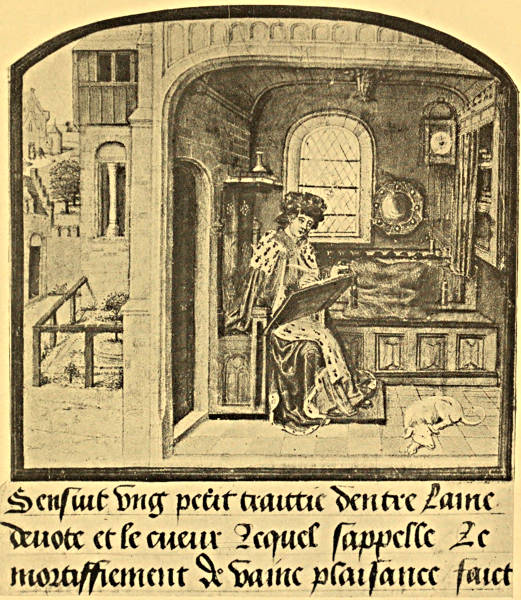 Sensuit vng petit traittie dentre lame
deuote et le cueur Lequel sappelle Le
mortiffiement de vaine plaisance faict